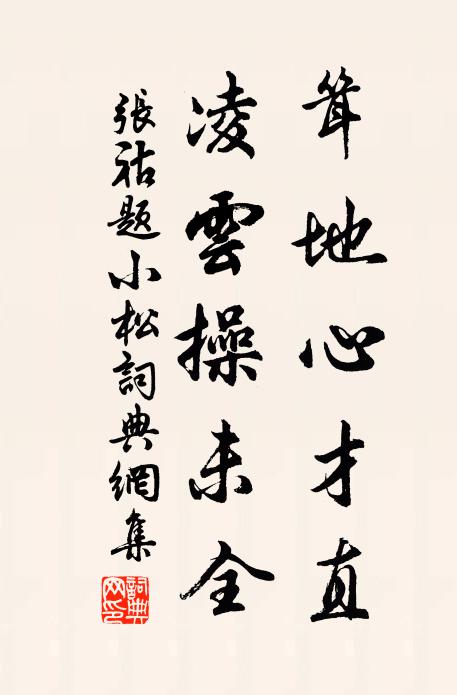 耸地心才直
凌雲操未全
張祜題小松詞典網集
詞典網印